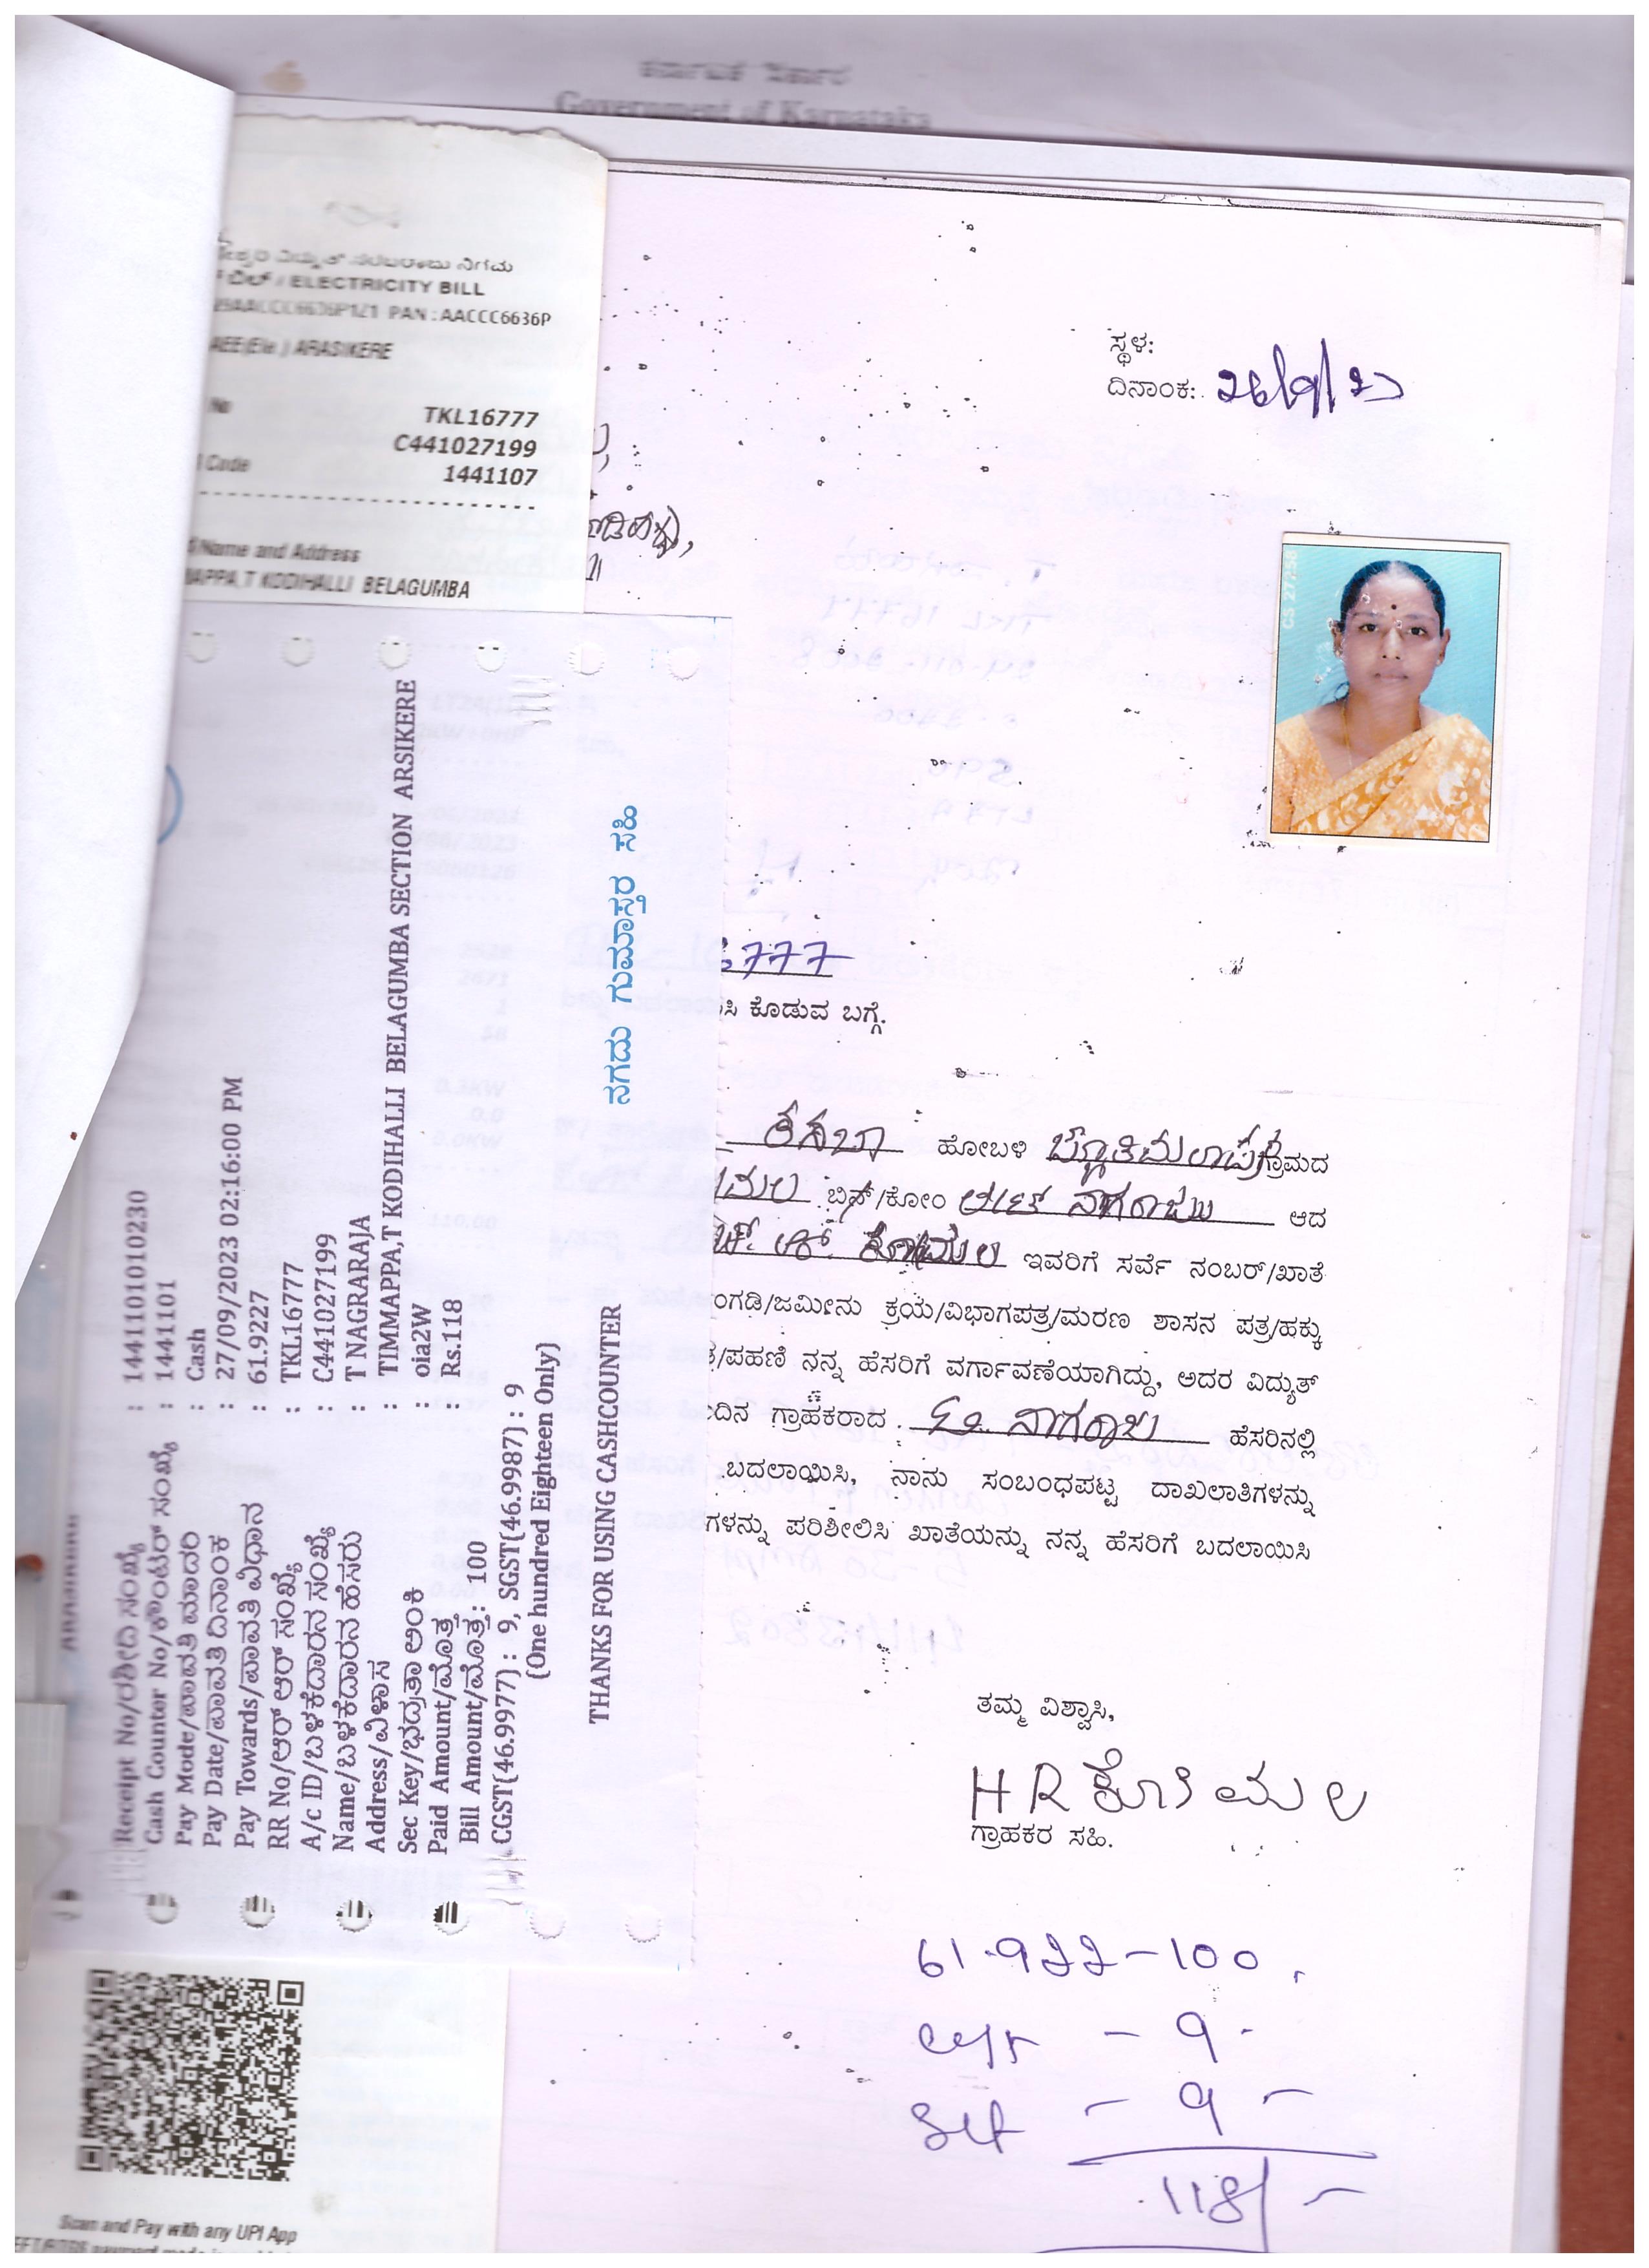 ಕರ್ನಾಟಕ ಸರ್ಕಾರ
Government of Karnataka
ವಿದ್ಯುತ್ ಸರಬರಾಜು ನಿಗಮ
ಬಿಲ್ / ELECTRICITY BILL
PAN : AACCC6636P
AEE(Ele.) ARASIKERE
No TKL16777
C441027199
Code 1441107
Name and Address
APPA,T KODIHALLI BELAGUMBA
ಸ್ಥಳ:
ದಿನಾಂಕ: 26/9/23
Receipt No/ರಶೀದಿ ಸಂಖ್ಯೆ : 144110101010230
Cash Counter No/ಕೌಂಟರ್ ಸಂಖ್ಯೆ : 1441101
Pay Mode/ಪಾವತಿ ಮಾದರಿ : Cash
Pay Date/ಪಾವತಿ ದಿನಾಂಕ : 27/09/2023 02:16:00 PM
Pay Towards/ಪಾವತಿ ವಿಧಾನ : 61.9227
RR No/ಆರ್ ಆರ್ ಸಂಖ್ಯೆ : TKL16777
A/c ID/ಬಳಕೆದಾರನ ಸಂಖ್ಯೆ : C441027199
Name/ಬಳಕೆದಾರನ ಹೆಸರು : T NAGRARAJA
Address/ವಿಳಾಸ : TIMMAPPA,T KODIHALLI BELAGUMBA SECTION ARSIKERE
Sec Key/ಭದ್ರತಾ ಅಂಕಿ : oia2W
Paid Amount/ಮೊತ್ತ : Rs.118
Bill Amount/ಮೊತ್ತ : 100
CGST(46.9977) : 9, SGST(46.9987) : 9
(One hundred Eighteen Only)
THANKS FOR USING CASHCOUNTER
ನಗದು ಗುಮಾಸ್ತರ ಸಹಿ
6777
ಸಿ ಕೊಡುವ ಬಗ್ಗೆ.
ಕಸಬಾ ಹೋಬಳಿ ಗ್ರಾಮದ
ಮಲ ಬಿನ್/ಕೋಂ ಲೇಟ್ ನಾಗರಾಜು ಆದ
ಹೆಚ್. ಆರ್. ಕೋಮಲ ಇವರಿಗೆ ಸರ್ವೆ ನಂಬರ್/ಖಾತೆ
ಂಗಡಿ/ಜಮೀನು ಕ್ರಯ/ವಿಭಾಗಪತ್ರ/ಮರಣ ಶಾಸನ ಪತ್ರ/ಹಕ್ಕು
/ಪಹಣಿ ನನ್ನ ಹೆಸರಿಗೆ ವರ್ಗಾವಣೆಯಾಗಿದ್ದು, ಅದರ ವಿದ್ಯುತ್
ದಿನ ಗ್ರಾಹಕರಾದ ಟಿ. ನಾಗರಾಜು ಹೆಸರಿನಲ್ಲಿ
ಬದಲಾಯಿಸಿ, ನಾನು ಸಂಬಂಧಪಟ್ಟ ದಾಖಲಾತಿಗಳನ್ನು
ಗಳನ್ನು ಪರಿಶೀಲಿಸಿ ಖಾತೆಯನ್ನು ನನ್ನ ಹೆಸರಿಗೆ ಬದಲಾಯಿಸಿ
ತಮ್ಮ ವಿಶ್ವಾಸಿ,
H R ಕೋಮಲ
ಗ್ರಾಹಕರ ಸಹಿ.
61.922 - 100
- 9 -
- 9 -
118/-
Scan and Pay with any UPI App